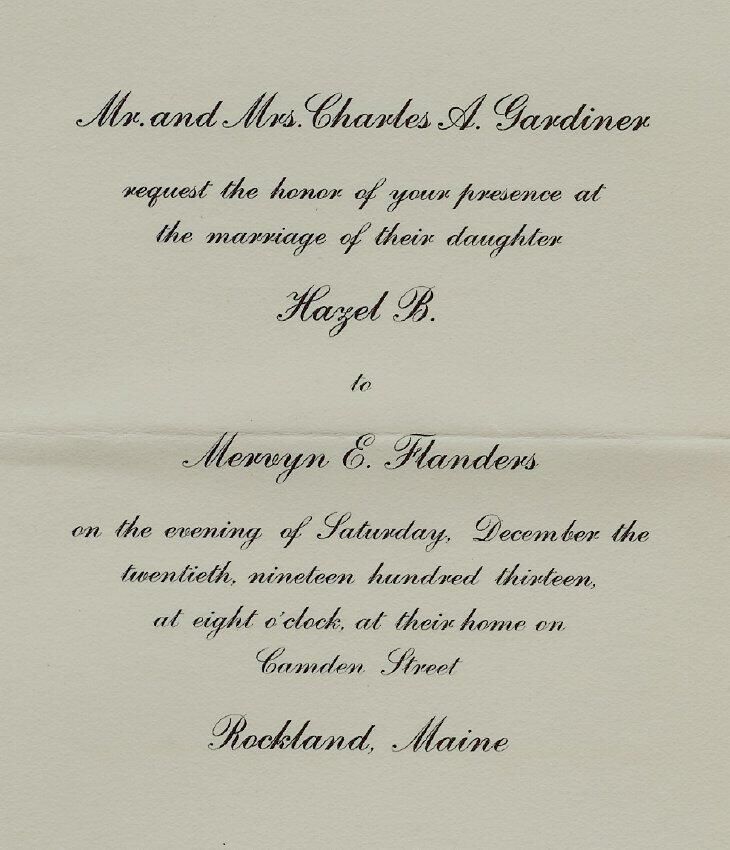 Mr. and Mrs. Charles A. Gardiner
request the honor of your presence at
the marriage of their daughter
Hazel B.
to
Mervyn E. Flanders
on the evening of Saturday, December the
twentieth, nineteen hundred thirteen,
at eight o'clock, at their home on
Camden Street
Rockland, Maine